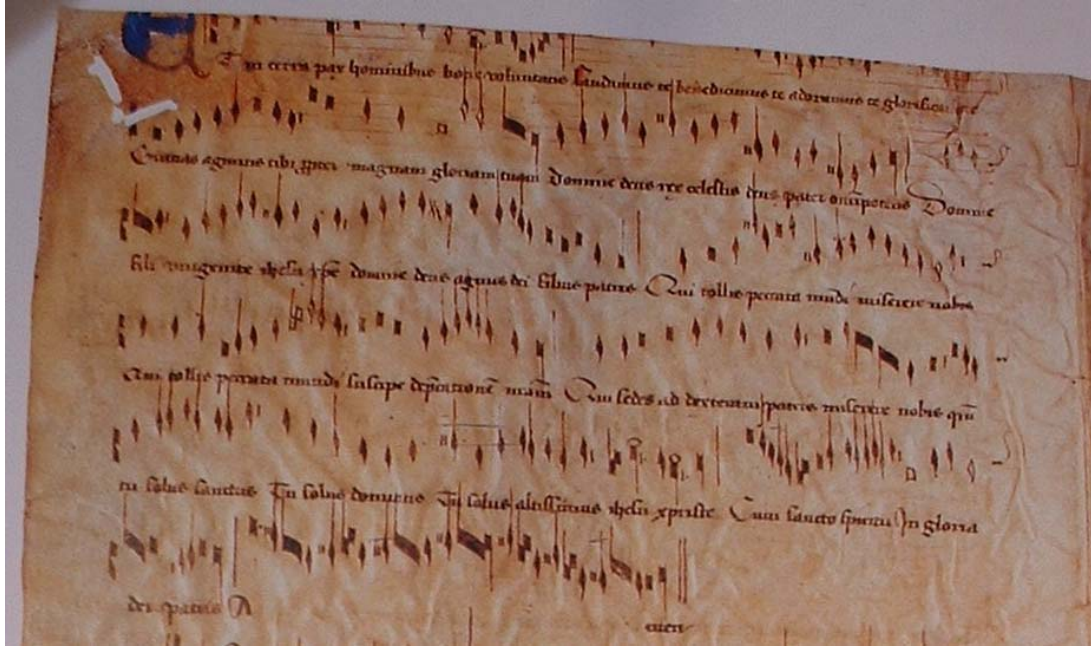 Et in terra pax hominibus bone voluntatis Laudamus te benedicimus te adoramus te glorificamus te
Gratias agimus tibi ppter magnam gloriam tuam Domine deus rex celestis deus pater omipotens Domine
fili unigenite ihesu xpe domine deus agnus dei filius patris Qui tollis peccata mudi miserere nobis
Qui tollis peccata mundi suscipe depcatione nram Qui sedes ad dexteram patris miserere nobis qm
tu solus sanctus Tu solus dominus Tu solus altissimus ihesu xpriste Cum sancto spiritu In gloria
dei patris A men